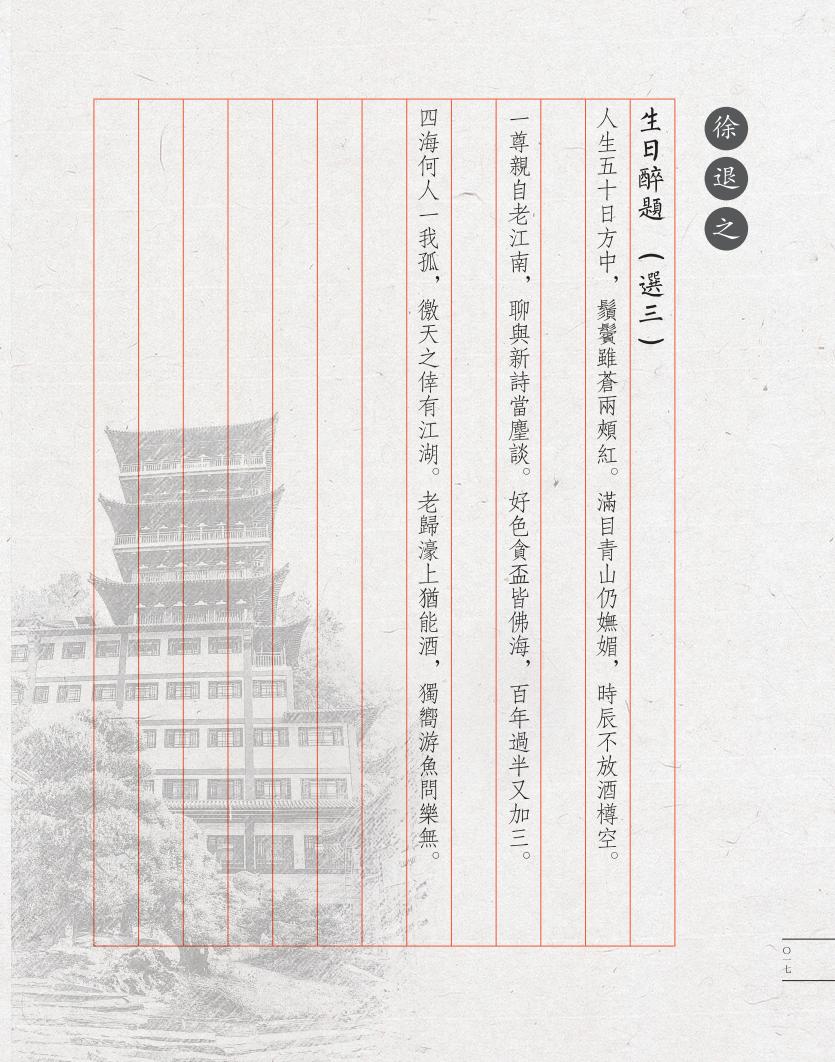 徐退之
生日醉題（選三）
人生五十日方中，鬚鬢雖蒼兩頰紅。滿目青山仍嫵媚，時辰不放酒樽空。
一尊親自老江南，聊與新詩當麈談。好色貪盃皆佛海，百年過半又加三。
四海何人一我孤，徼天之倖有江湖。老歸濠上猶能酒，獨嚮游魚問樂無。
〇一七